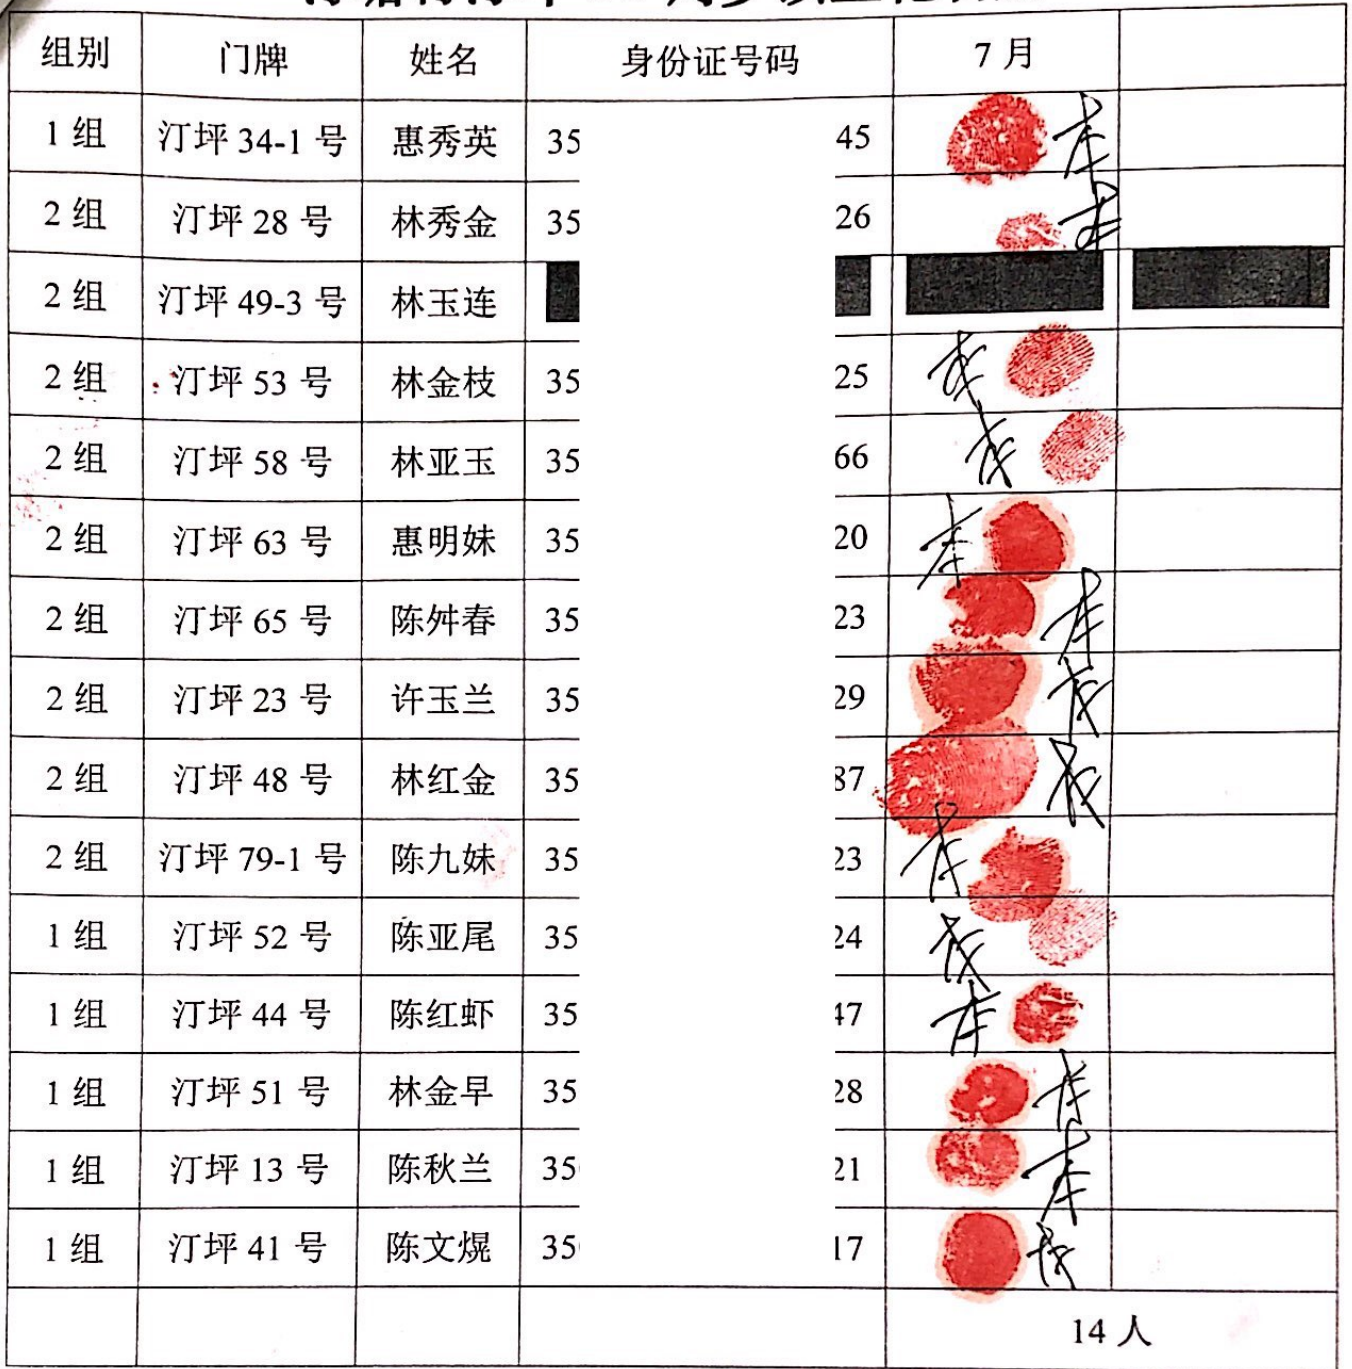 组别 门牌 姓名 身份证号码 7 月
1 组 汀坪 34-1 号 惠秀英 35 45
2 组 汀坪 28 号 林秀金 35 26
2 组 汀坪 49-3 号 林玉连
2 组 汀坪 53 号 林金枝 35 25
2 组 汀坪 58 号 林亚玉 35 66
2 组 汀坪 63 号 惠明妹 35 20
2 组 汀坪 65 号 陈舛春 35 23
2 组 汀坪 23 号 许玉兰 35 29
2 组 汀坪 48 号 林红金 35 87
2 组 汀坪 79-1 号 陈九妹 35 23
1 组 汀坪 52 号 陈亚尾 35 24
1 组 汀坪 44 号 陈红虾 35 47
1 组 汀坪 51 号 林金早 35 28
1 组 汀坪 13 号 陈秋兰 35 21
1 组 汀坪 41 号 陈文熀 35 17
14 人